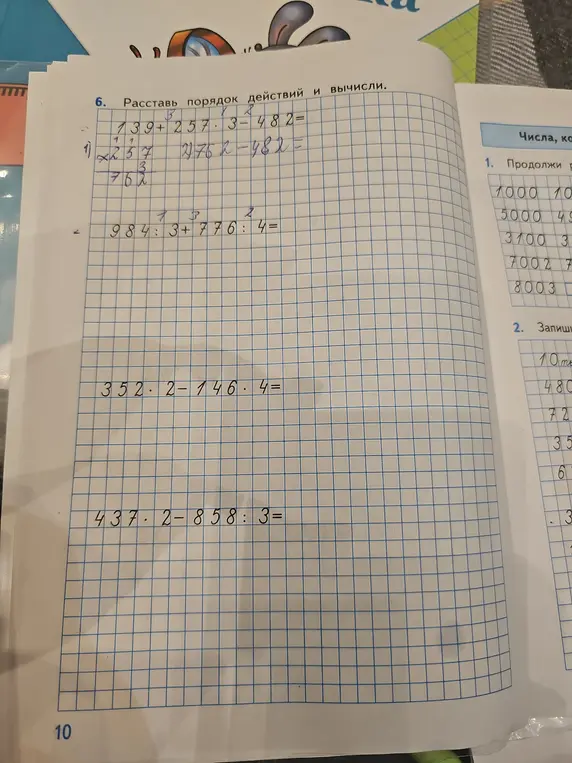 ка
6. Расставь порядок действий и вычисли.
3 1 2
139+257·3−482=
1) ×257 2) 762−482=
3
762
1 3 2
984:3+776:4=
352·2−146·4=
437·2−858:3=
10
Числа, ко
1. Продолжи
1000 10
5000 4
3100 3
7002 7
8003
2. Запиши
10
480
72
35
6
3